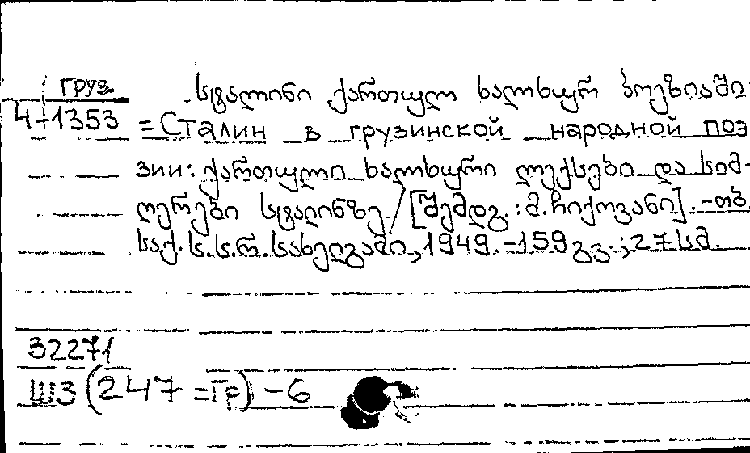 груз.
სტალინი ქართულ ხალხურ პოეზიაში
4-1353
= Сталин в грузинской народной поэ
зии: ქართული ხალხური ლექსები და სიმ-
ღერები სტალინზე / [შემდგ.: მ. ჩიქოვანი]. - თბ.
საქ. ს.ს.რ. სახელგამი, 1949. - 159 გვ.; 27 სმ.
32271
Ш3(247=Гр)-6